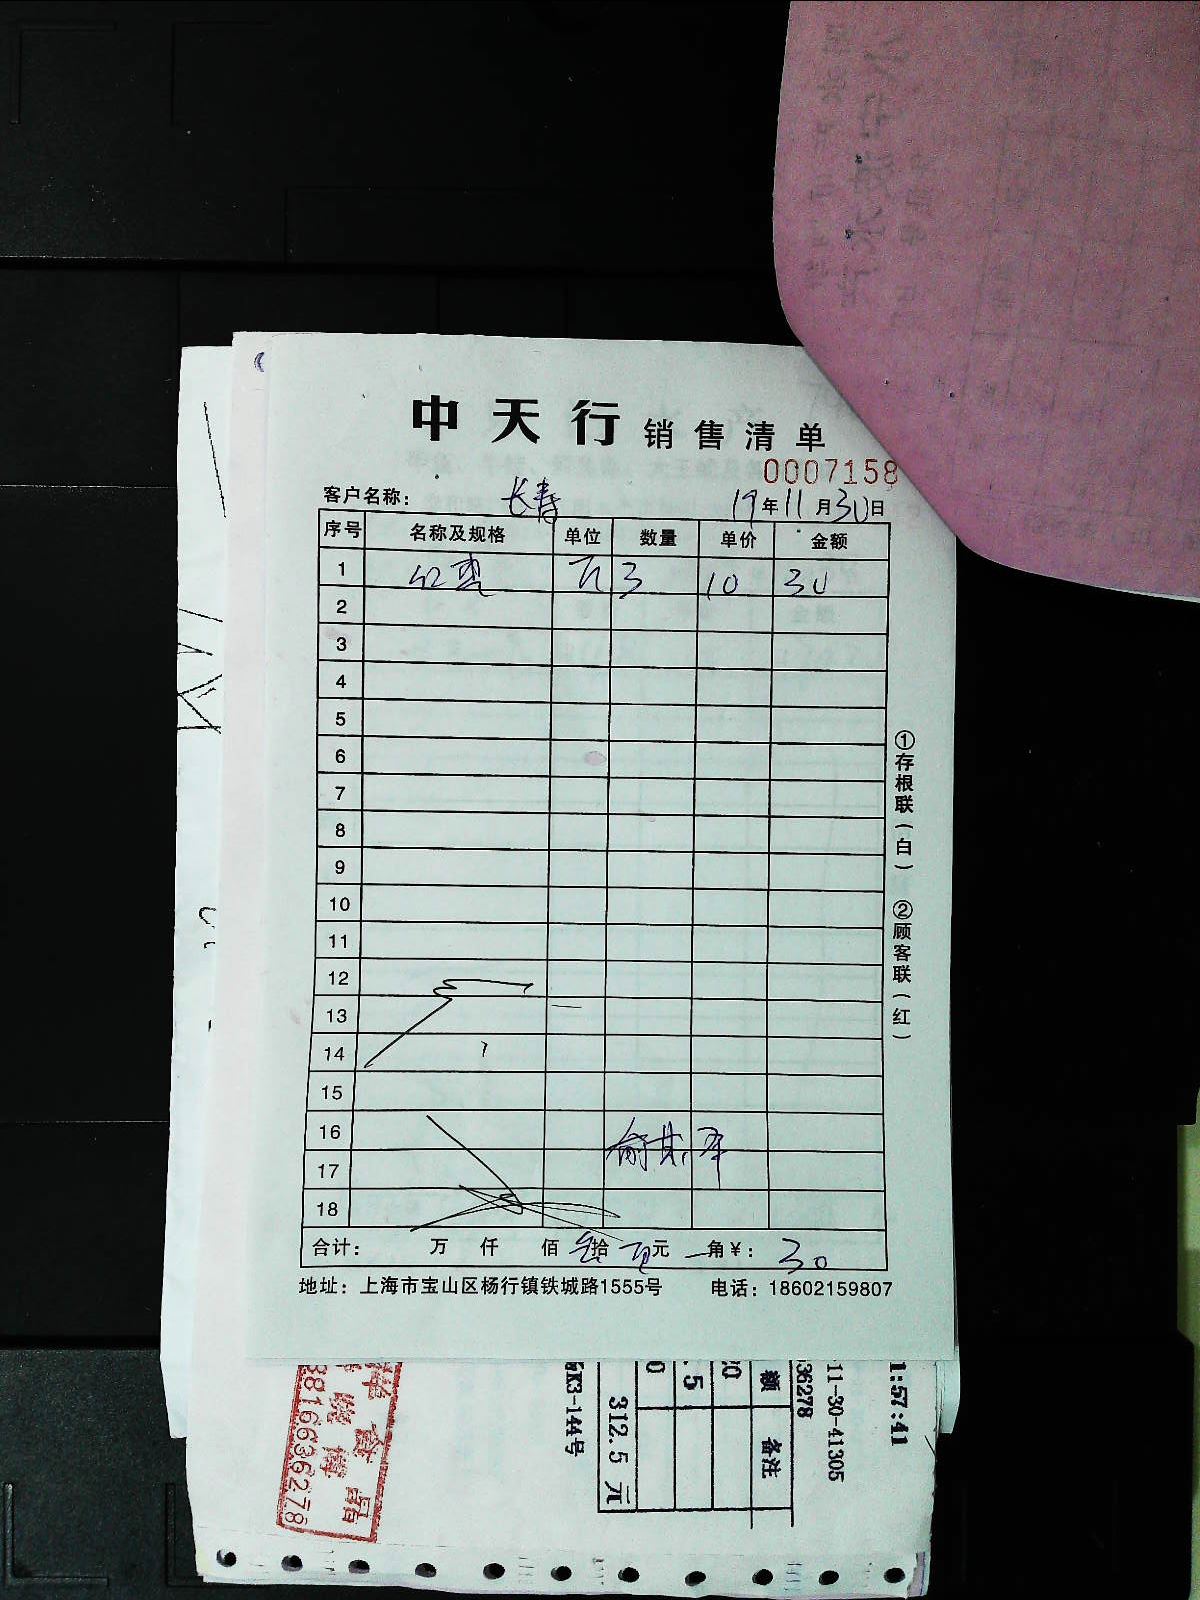 中天行 销售清单
0007158
客户名称： 长寿 19年11月30日
序号 名称及规格 单位 数量 单价 金额
1 3 10 30
2
3
4
5
6
7
8
9
10
11
12
13
14
15
16
17
18
合计： 万 仟 佰 叁拾 元 角￥： 30
地址：上海市宝山区杨行镇铁城路1555号 电话：18602159807
①存根联（白） ②顾客联（红）
1:57:41
11-30-41305
36278
额 备注
312.5 元
K3-144号
38166636278